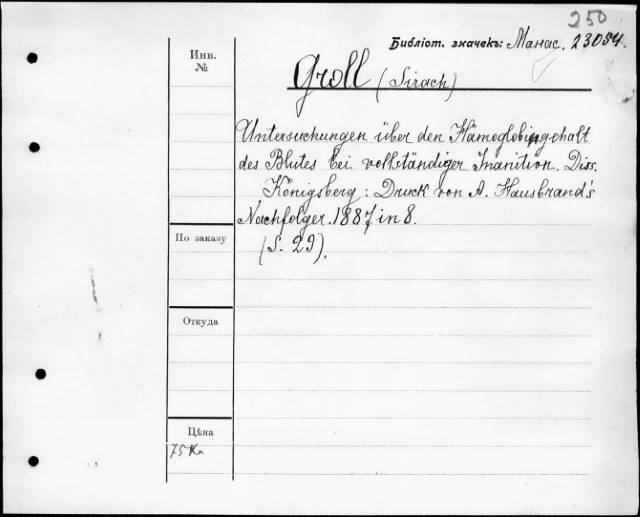 250
Библіот. значекъ: Манас. 23054.
Инв. №
Groll (Sirach)
Untersuchungen über den Hämoglobingehalt
des Blutes bei vollständiger Inanition. Diss.
Königsberg: Druck von A. Hausbrand's
Nachfolger. 1887 in 8.
(S. 29).
По заказу
Откуда
Цѣна
75 К.